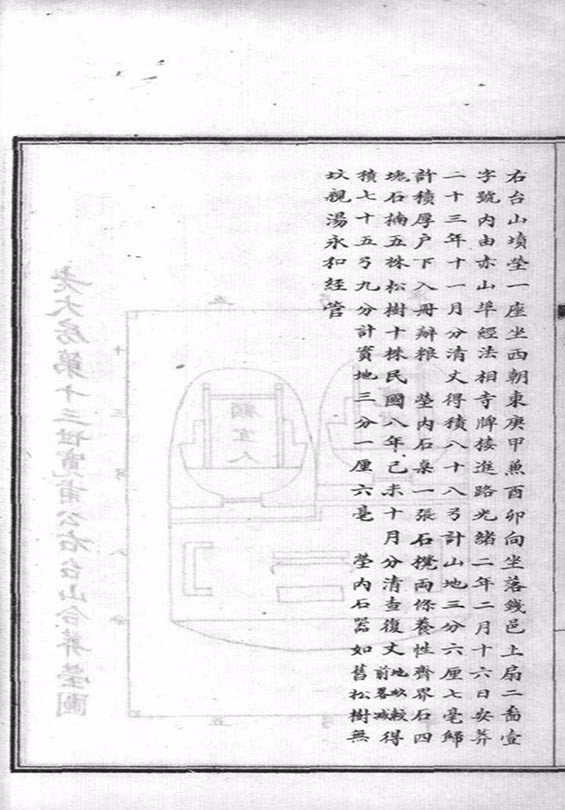 右台山墳塋一座坐西朝東庚甲兼酉卯向坐落錢邑上扇二啚壹
字號內由赤山埠經法相寺牌接進路光緒二年二月十六日安葬
二十三年十一月分清丈得積八十八弓計山地三分六厘七毫歸
計積厚戶下入冊辦粮 塋內石桌一張石櫈兩條養性齊界石四
塊石楠五株松樹十株民國八年己未十月分清查復丈地畝較前畧減得
積七十五弓九分計實地三分一厘六毫 塋內石器如舊松樹無
坟親湯永和經管